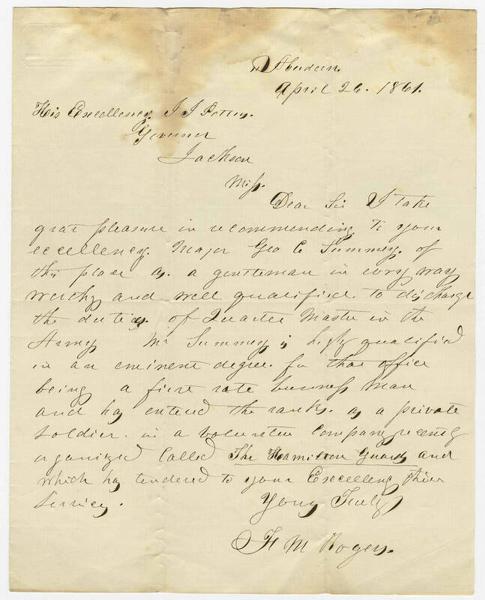 Aberdeen
April 26. 1861.
His Excellency J J Pettus
Governor
Jackson
Miss.
Dear Sir I take
great pleasure in recommending to your
excellency Major Geo C Summey of
this place as a gentleman in every way
worthy and well qualified to discharge
the duties of Quarter Master in the
Army Mr Summey is highly qualified
in an eminent degree for that office
being a first rate business man
and has entered the ranks as a private
soldier in a volunteer company recently
organized called The Hamilton Guards and
which has tendered to your Excellency their
services.
Yours Truly
F M Rogers.